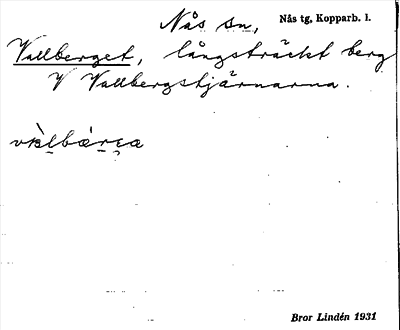 Nås sn, Nås tg, Kopparb. l.
Vallberget, långsträckt berg
V Vallbergstjärnarna.
Bror Lindén 1931